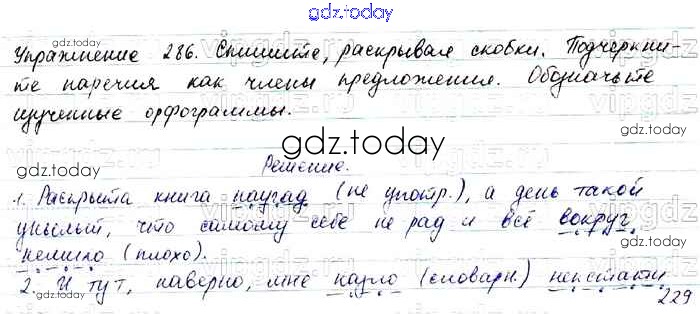 gdz.today
Упражнение 286. Спишите, раскрывая скобки. Подчеркни-
gdz.today gdz.today
те наречия как члены предложения. Обозначьте
изученные орфограммы.
gdz.today
Решение.
gdz.today
1. Раскрыта книга наугад (не употр.), а день такой
унылый, что самому себе не рад и всё вокруг
gdz.today
немило (плохо).
gdz.today
2. И тут, наверно, мне назло (словарн.) некстати
gdz.today
229